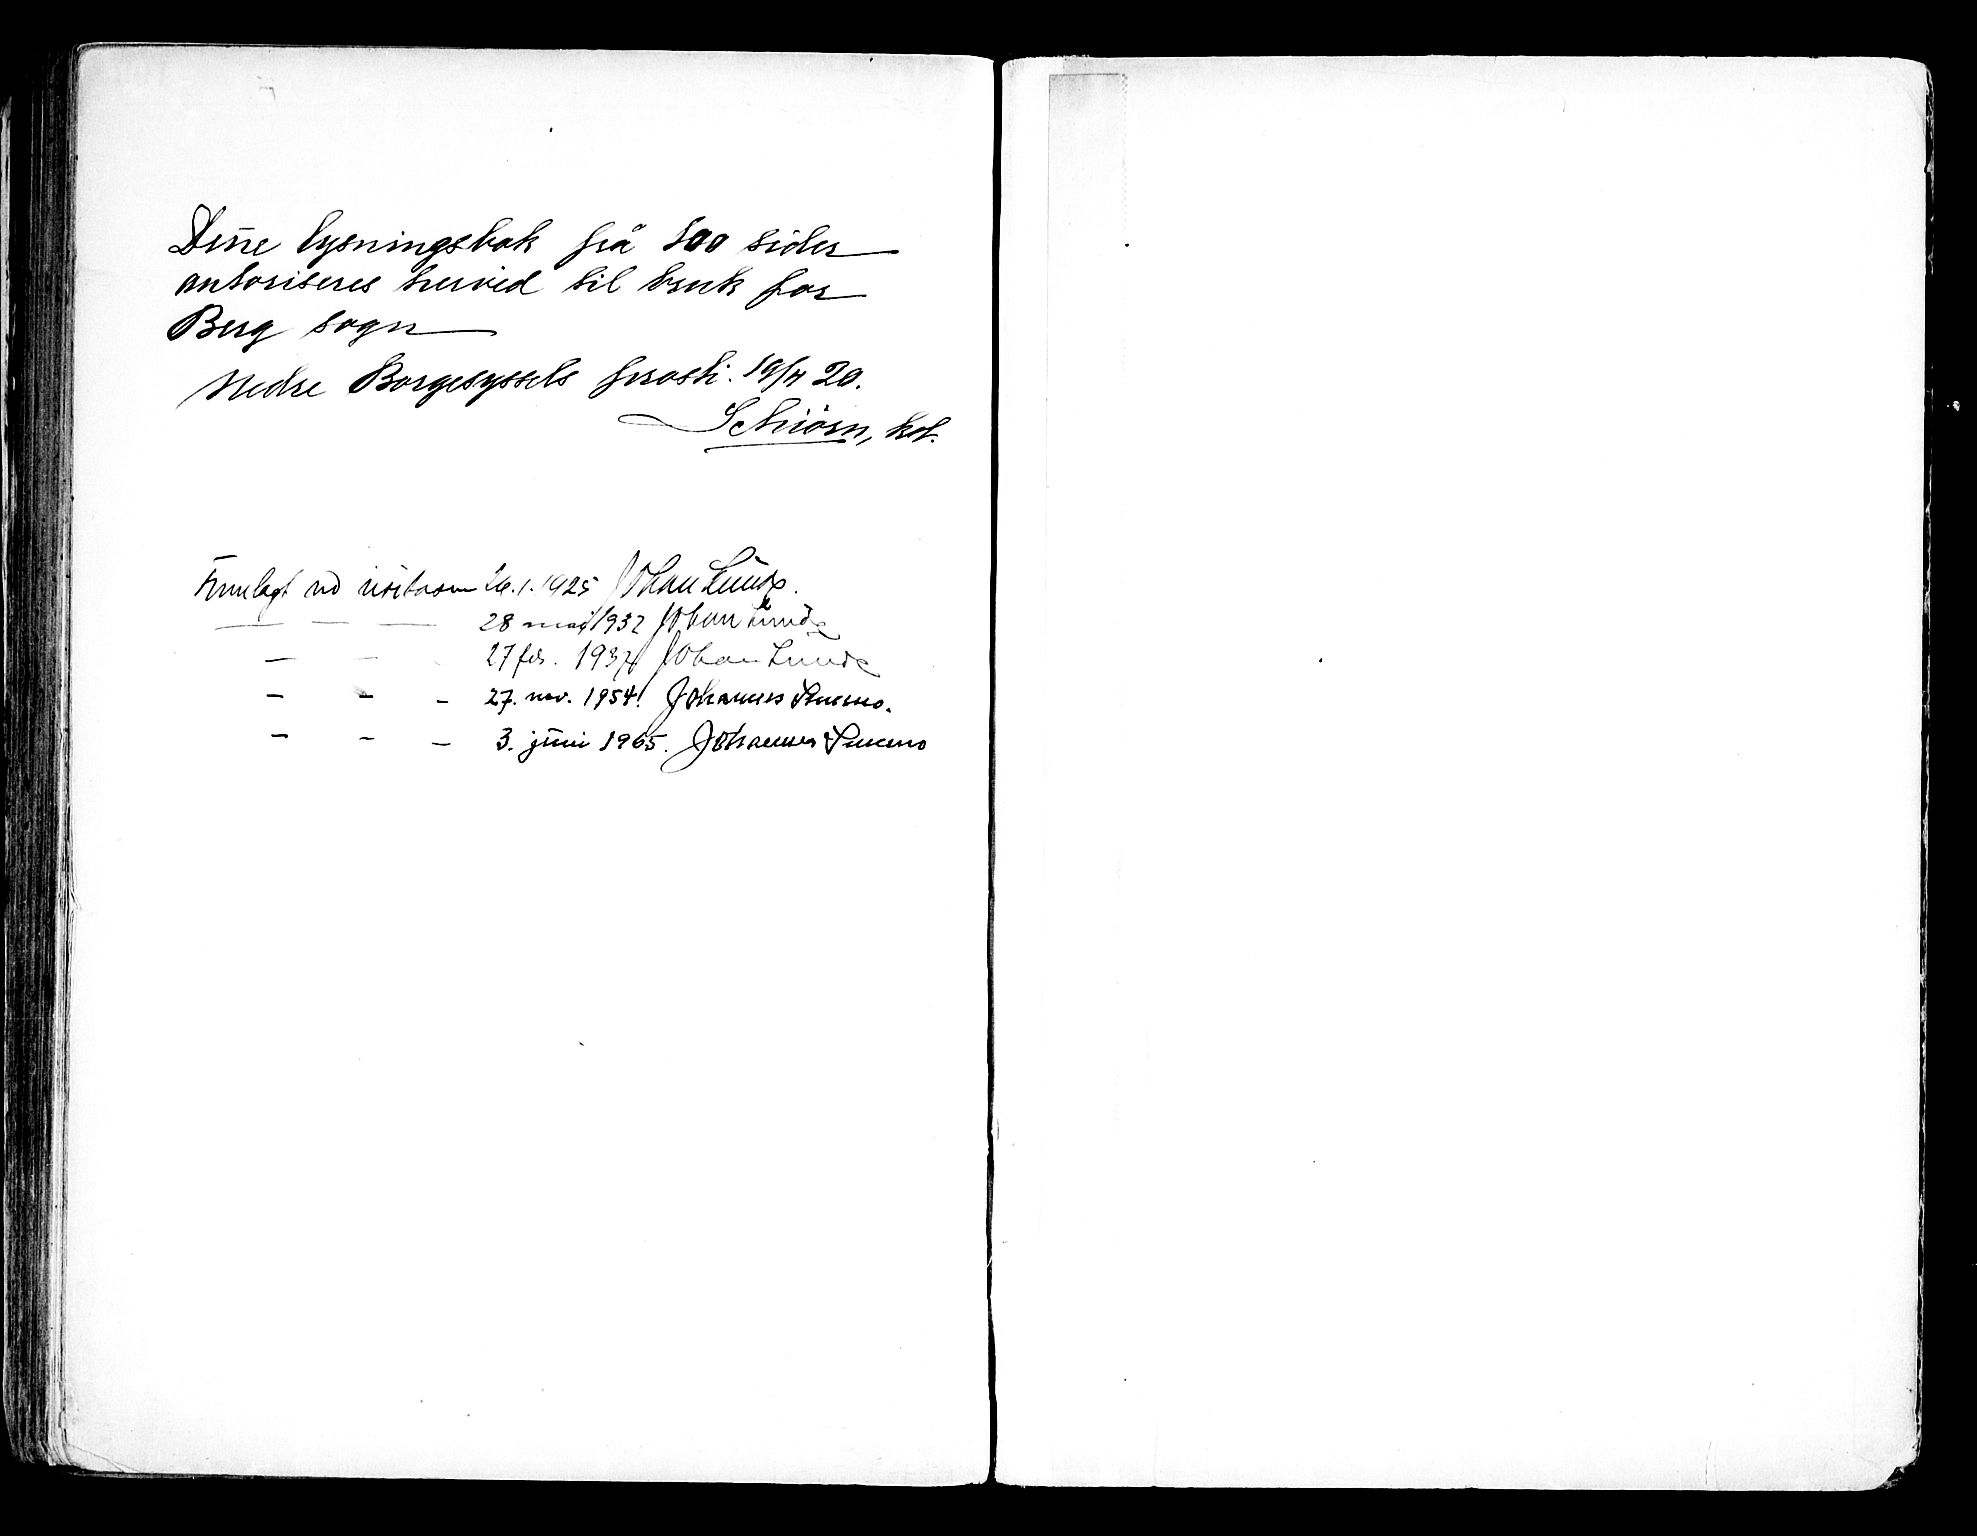 Denne lysningsbok på 800 sider
autoriseres herved til bruk for
Berg sogn
Nedre Borgesyssels prosti. 19/4 20.
Schiörn, kst.
Fremlagt ved visitasen 26.1.1925 Johan Lunde.
— — — 28 mai 1932 Johan Lunde
— — — 27 feb. 1937 Johan Lunde
— — — 27. nov. 1954. Johannes Smemo.
— — — 3. juni 1965. Johannes Smemo